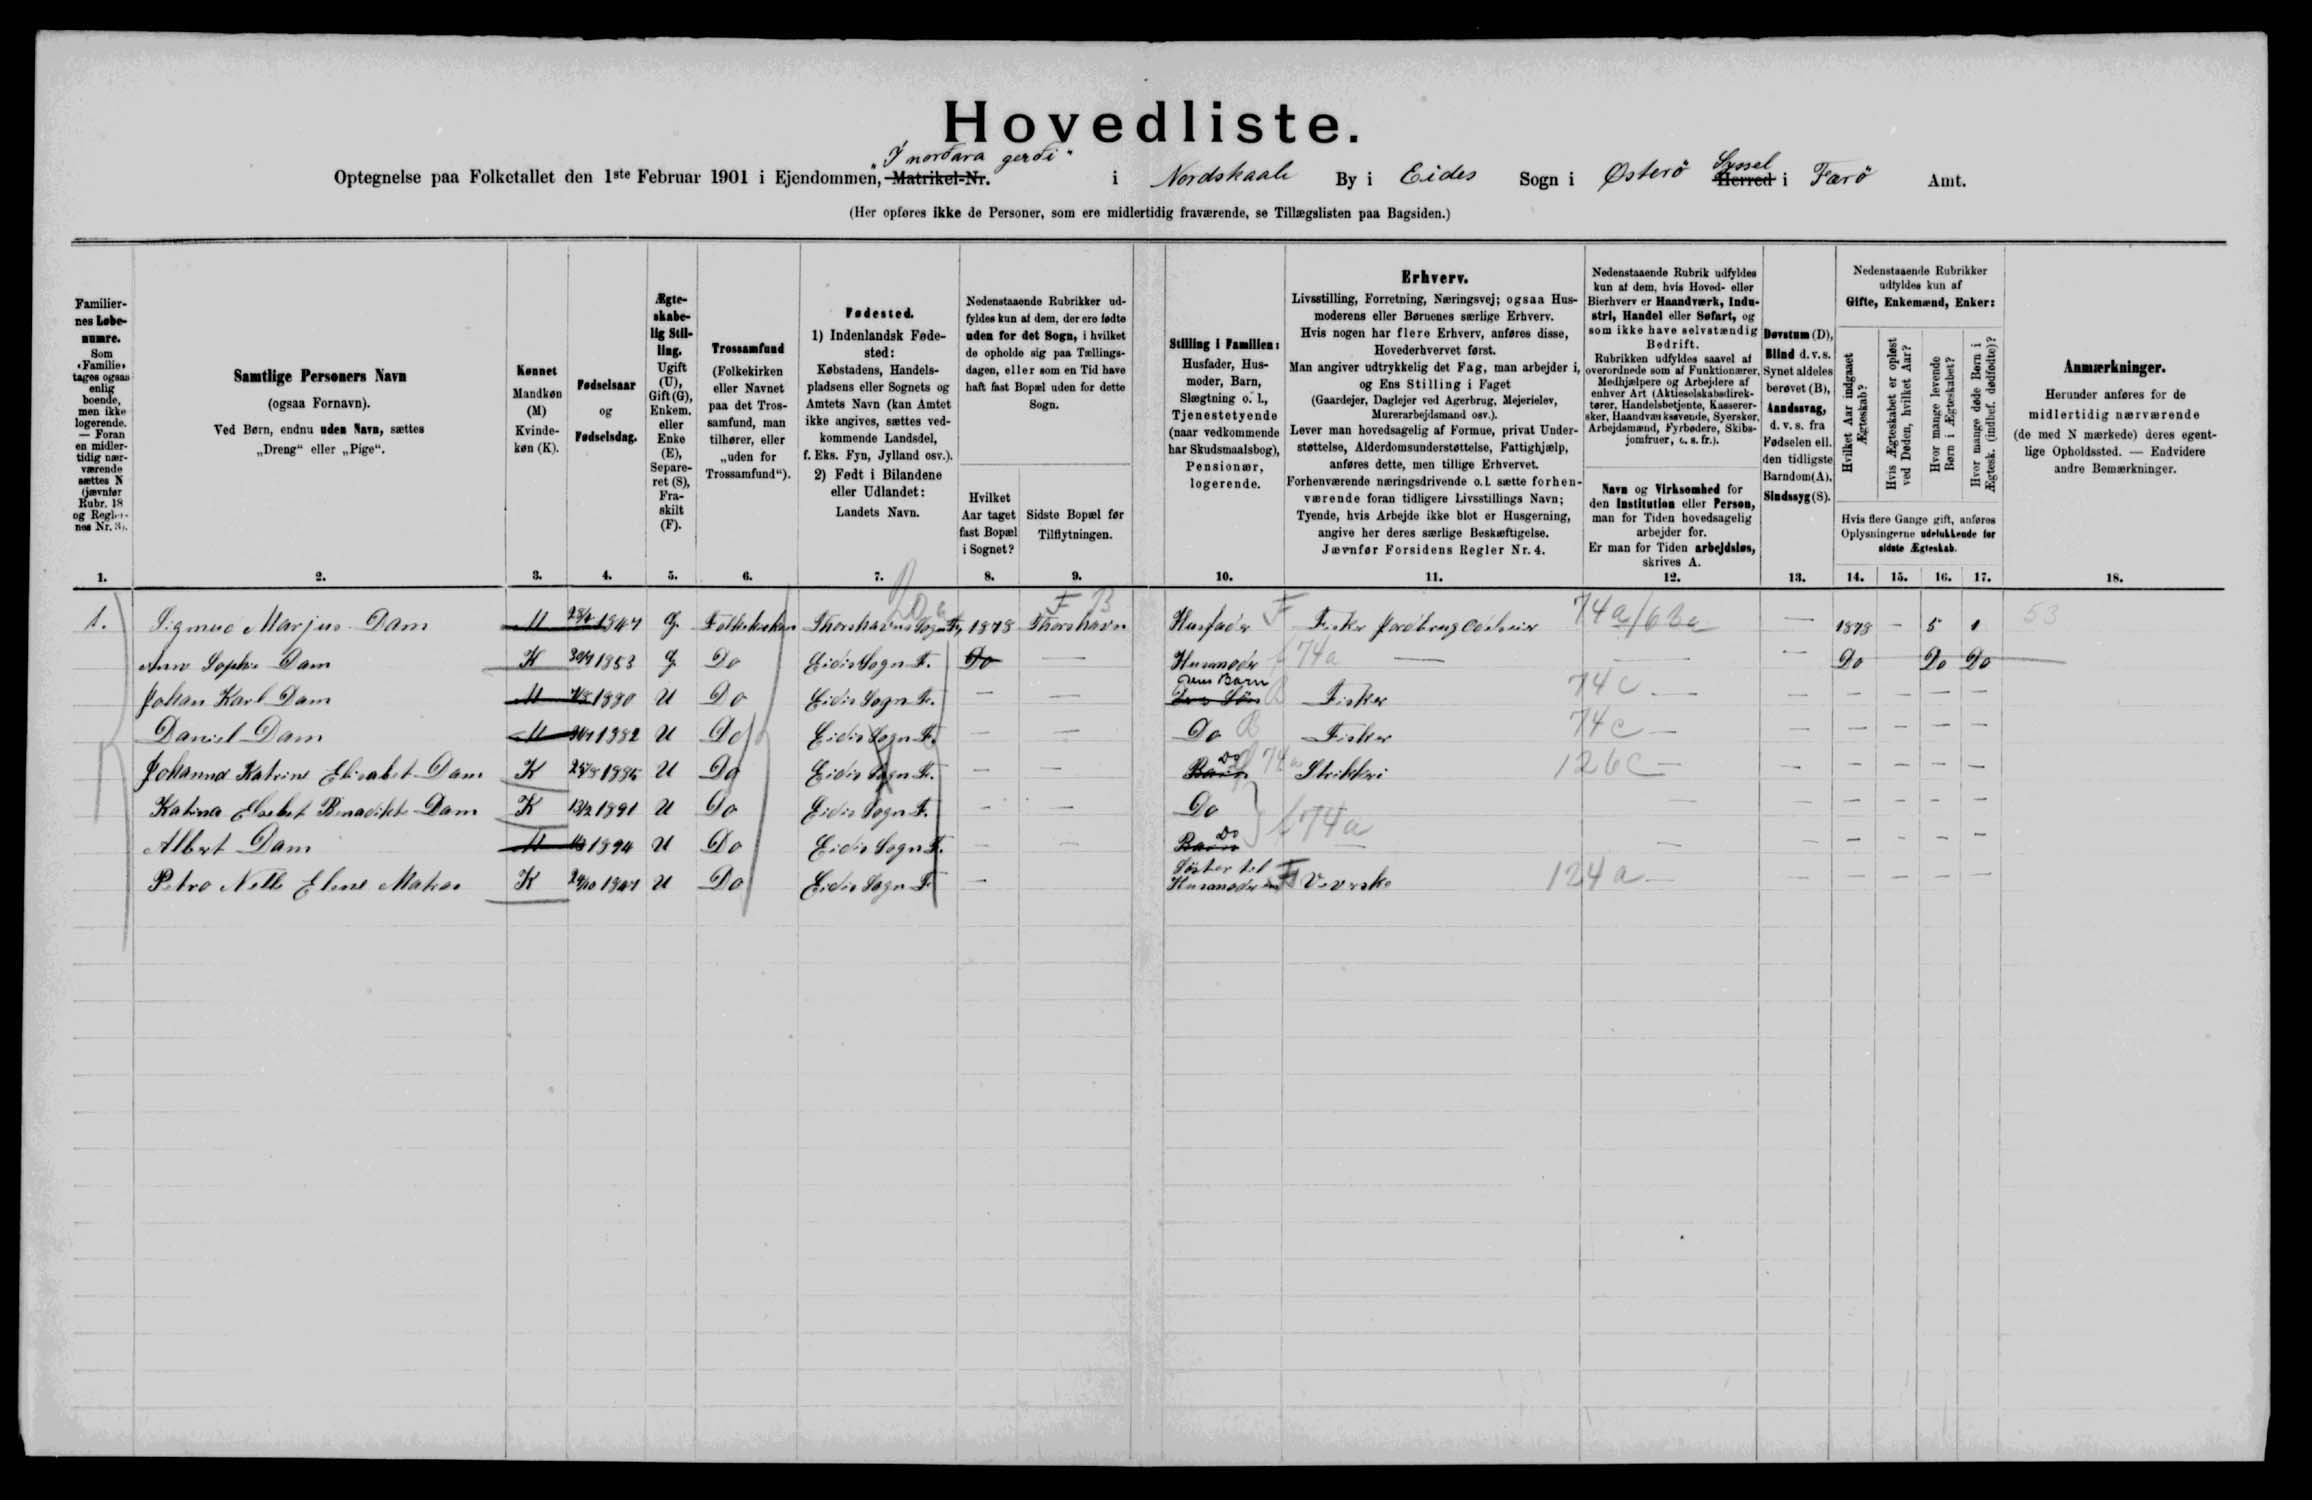 Hovedliste.
Optegnelse paa Folketallet den 1ste Februar 1901 i Ejendommen, Matrikel-Nr. „I nordara gerdi“ i Nordskaale By i Eides Sogn i Østerö Herred Syssel i Færö Amt.
(Her opføres ikke de Personer, som ere midlertidig fraværende, se Tillægslisten paa Bagsiden.)
Familiernes Løbenumre.
Som «Familie» tages ogsaa enlig boende, men ikke logerende. — Foran en midlertidig nærværende sættes N (jævnfør Rubr. 18 og Reglernes Nr. 3).
Samtlige Personers Navn
(ogsaa Fornavn).
Ved Børn, endnu uden Navn, sættes
„Dreng“ eller „Pige“.
Kønnet
Mandkøn (M)
Kvindekøn (K).
Fødselsaar
og
Fødselsdag.
Ægteskabelig Stilling.
Ugift (U), Gift (G), Enkem. eller Enke (E), Separeret (S), Fraskilt (F).
Trossamfund
(Folkekirken eller Navnet paa det Trossamfund, man tilhører, eller „uden for Trossamfund“).
Fødested.
1) Indenlandsk Fødested:
Købstadens, Handelspladsens eller Sognets og Amtets Navn (kan Amtet ikke angives, sættes vedkommende Landsdel, f. Eks. Fyn, Jylland osv.).
2) Født i Bilandene eller Udlandet:
Landets Navn.
Nedenstaaende Rubrikker udfyldes kun af dem, der ere fødte uden for det Sogn, i hvilket de opholde sig paa Tællingsdagen, eller som en Tid have haft fast Bopæl uden for dette Sogn.
Hvilket Aar taget fast Bopæl i Sognet?
Sidste Bopæl før Tilflytningen.
Stilling i Familien:
Husfader, Husmoder, Barn, Slægtning o. l., Tjenestetyende (naar vedkommende har Skudsmaalsbog), Pensionær, logerende.
Erhverv.
Livsstilling, Forretning, Næringsvej; ogsaa Husmoderens eller Børnenes særlige Erhverv.
Hvis nogen har flere Erhverv, anføres disse, Hovederhvervet først.
Man angiver udtrykkelig det Fag, man arbejder i, og Ens Stilling i Faget
(Gaardejer, Daglejer ved Agerbrug, Mejerielev, Murerarbejdsmand osv.).
Lever man hovedsagelig af Formue, privat Understøttelse, Alderdomsunderstøttelse, Fattighjælp, anføres dette, men tillige Erhvervet.
Forhenværende næringsdrivende o.l. sætte forhenværende foran tidligere Livsstillings Navn; Tyende, hvis Arbejde ikke blot er Husgerning, angive her deres særlige Beskæftigelse.
Jævnfør Forsidens Regler Nr. 4.
Nedenstaaende Rubrik udfyldes kun af dem, hvis Hoved- eller Bierhverv er Haandværk, Industri, Handel eller Søfart, og som ikke have selvstændig Bedrift.
Rubrikken udfyldes saavel af overordnede som af Funktionærer, Medhjælpere og Arbejdere af enhver Art (Aktieselskabsdirektører, Handelsbetjente, Kasserersker, Haandværkssvende, Syersker, Arbejdsmænd, Fyrbødere, Skibsjomfruer, o. s. fr.).
Navn og Virksomhed for den Institution eller Person, man for Tiden hovedsagelig arbejder for.
Er man for Tiden arbejdsløs, skrives A.
Døvstum (D), Blind d. v. s. Synet aldeles berøvet (B), Aandssvag, d. v. s. fra Fødselen ell. den tidligste Barndom (A), Sindssyg (S).
Nedenstaaende Rubrikker udfyldes kun af
Gifte, Enkemænd, Enker:
Hvilket Aar indgaaet Ægteskab?
Hvis Ægteskabet er opløst ved Døden, hvilket Aar?
Hvor mange levende Børn i Ægteskabet?
Hvor mange døde Børn i Ægtesk. (indbef. dødfødte)?
Hvis flere Gange gift, anføres Oplysningerne udelukkende for sidste Ægteskab.
Anmærkninger.
Herunder anføres for de midlertidig nærværende (de med N mærkede) deres egentlige Opholdssted. — Endvidere andre Bemærkninger.
1. 2. 3. 4. 5. 6. 7. 8. 9. 10. 11. 12. 13. 14. 15. 16. 17. 18.
1. Sigmund Marjus Dam M 1847 G Folkekirken Thorshavns Sogn F. 1878 Thorshavn Husfader F Fisker 74a/62a — 1878 — 5 1 53
Ann Sophie Dam K 1853 G Do Eidis Sogn F. Do — Husmoder 74a — — — Do Do Do
Johan Karl Dam M 1880 U Do Eidis Sogn F. — — deres Barn Fisker 74c — — — — — —
Daniel Dam M 1882 U Do Eidis Sogn F. — — Do Fisker 74c — — — — — —
Johanna Katrine Elisabet Dam K 1885 U Do Eidis Sogn F. — — Barn Do 74a Strikkeri 126c — — — — — —
Katrina Elsebet Benedikte Dam K 13/2 1891 U Do Eidis Sogn F. — — Do — — — — — —
Albert Dam M 1894 U Do Eidis Sogn F. — — Barn Do 74a — — — — — —
Petra Nella Elene K 29/10 1847 U Do Eidis Sogn F. — Söster til Husmoderen F Væverske 124a — — — — — —